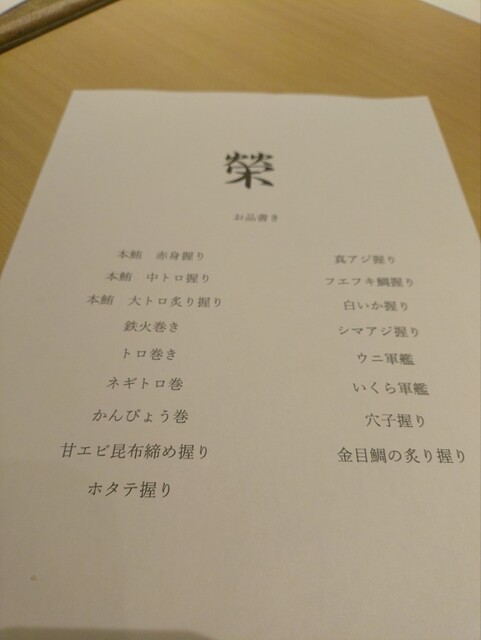 榮
お品書き
本鮪　赤身握り
本鮪　中トロ握り
本鮪　大トロ炙り握り
鉄火巻き
トロ巻き
ネギトロ巻
かんぴょう巻
甘エビ昆布締め握り
ホタテ握り
真アジ握り
フエフキ鯛握り
白いか握り
シマアジ握り
ウニ軍艦
いくら軍艦
穴子握り
金目鯛の炙り握り